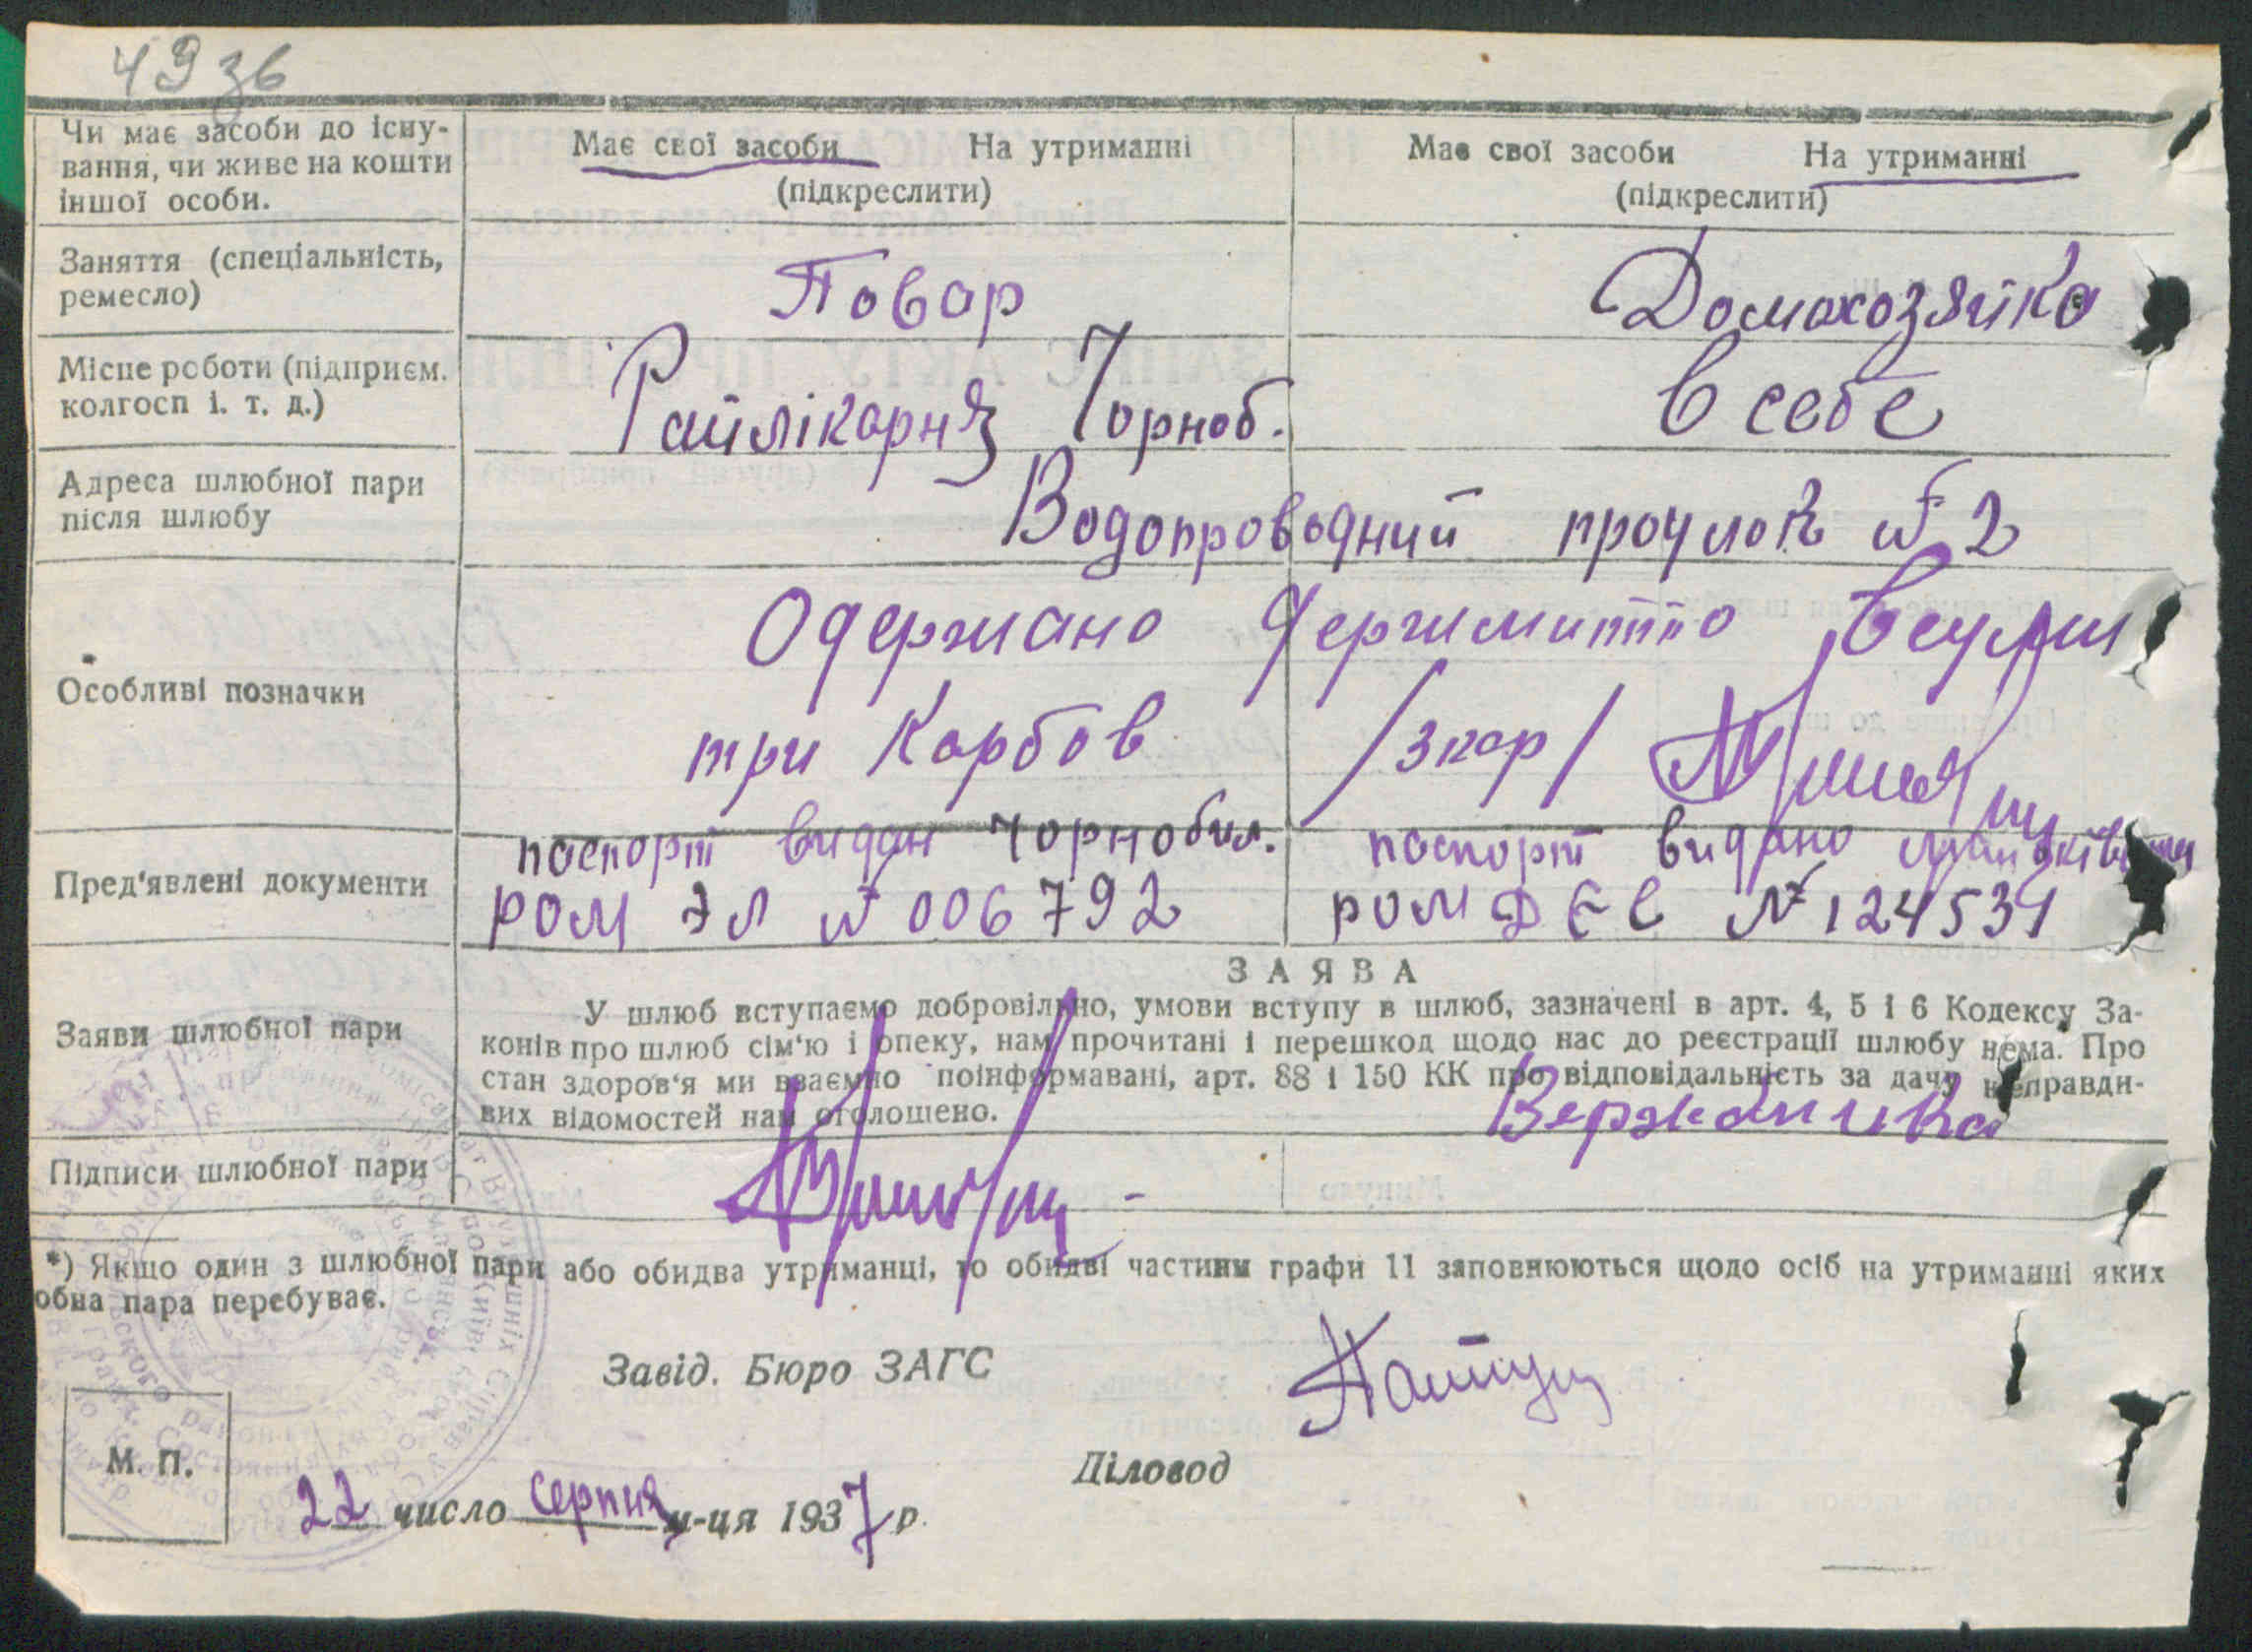 49 зв
Чи має засоби до існу-
вання, чи живе на кошти
іншої особи.
Має свої засоби На утриманні
(підкреслити)
Має свої засоби На утриманні
(підкреслити)
Заняття (спеціальність,
ремесло)
Повар
Домахозяйка
Місце роботи (підприєм.
колгосп і. т. д.)
Райлікарня Чорноб.
в себе
Адреса шлюбної пари
після шлюбу
Водопроводний проулок № 2
Особливі позначки
Одержано держмитто в сумі
три Карбов /3 кар/
Пред'явлені документи
паспорт видан Чорнобил.
РОМ ЭЛ № 006792
паспорт видано
РОМ ДЕС № 124531
Заяви шлюбної пари
ЗАЯВА
У шлюб вступаємо добровільно, умови вступу в шлюб, зазначені в арт. 4, 5 і 6 Кодексу За-
конів про шлюб сім'ю і опеку, нам прочитані і перешкод щодо нас до реєстрації шлюбу нема. Про
стан здоров'я ми взаємно поінформавані, арт. 88 і 150 КК про відповідальність за дачу неправди-
вих відомостей нам оголошено.
Підписи шлюбної пари
*) Якщо один з шлюбної пари або обидва утриманці, то обидві частини графи 11 заповнюються щодо осіб на утриманні яких
обна пара перебуває.
Завід. Бюро ЗАГС
Діловод
М. П.
22 число серпня м-ця 1937 р.